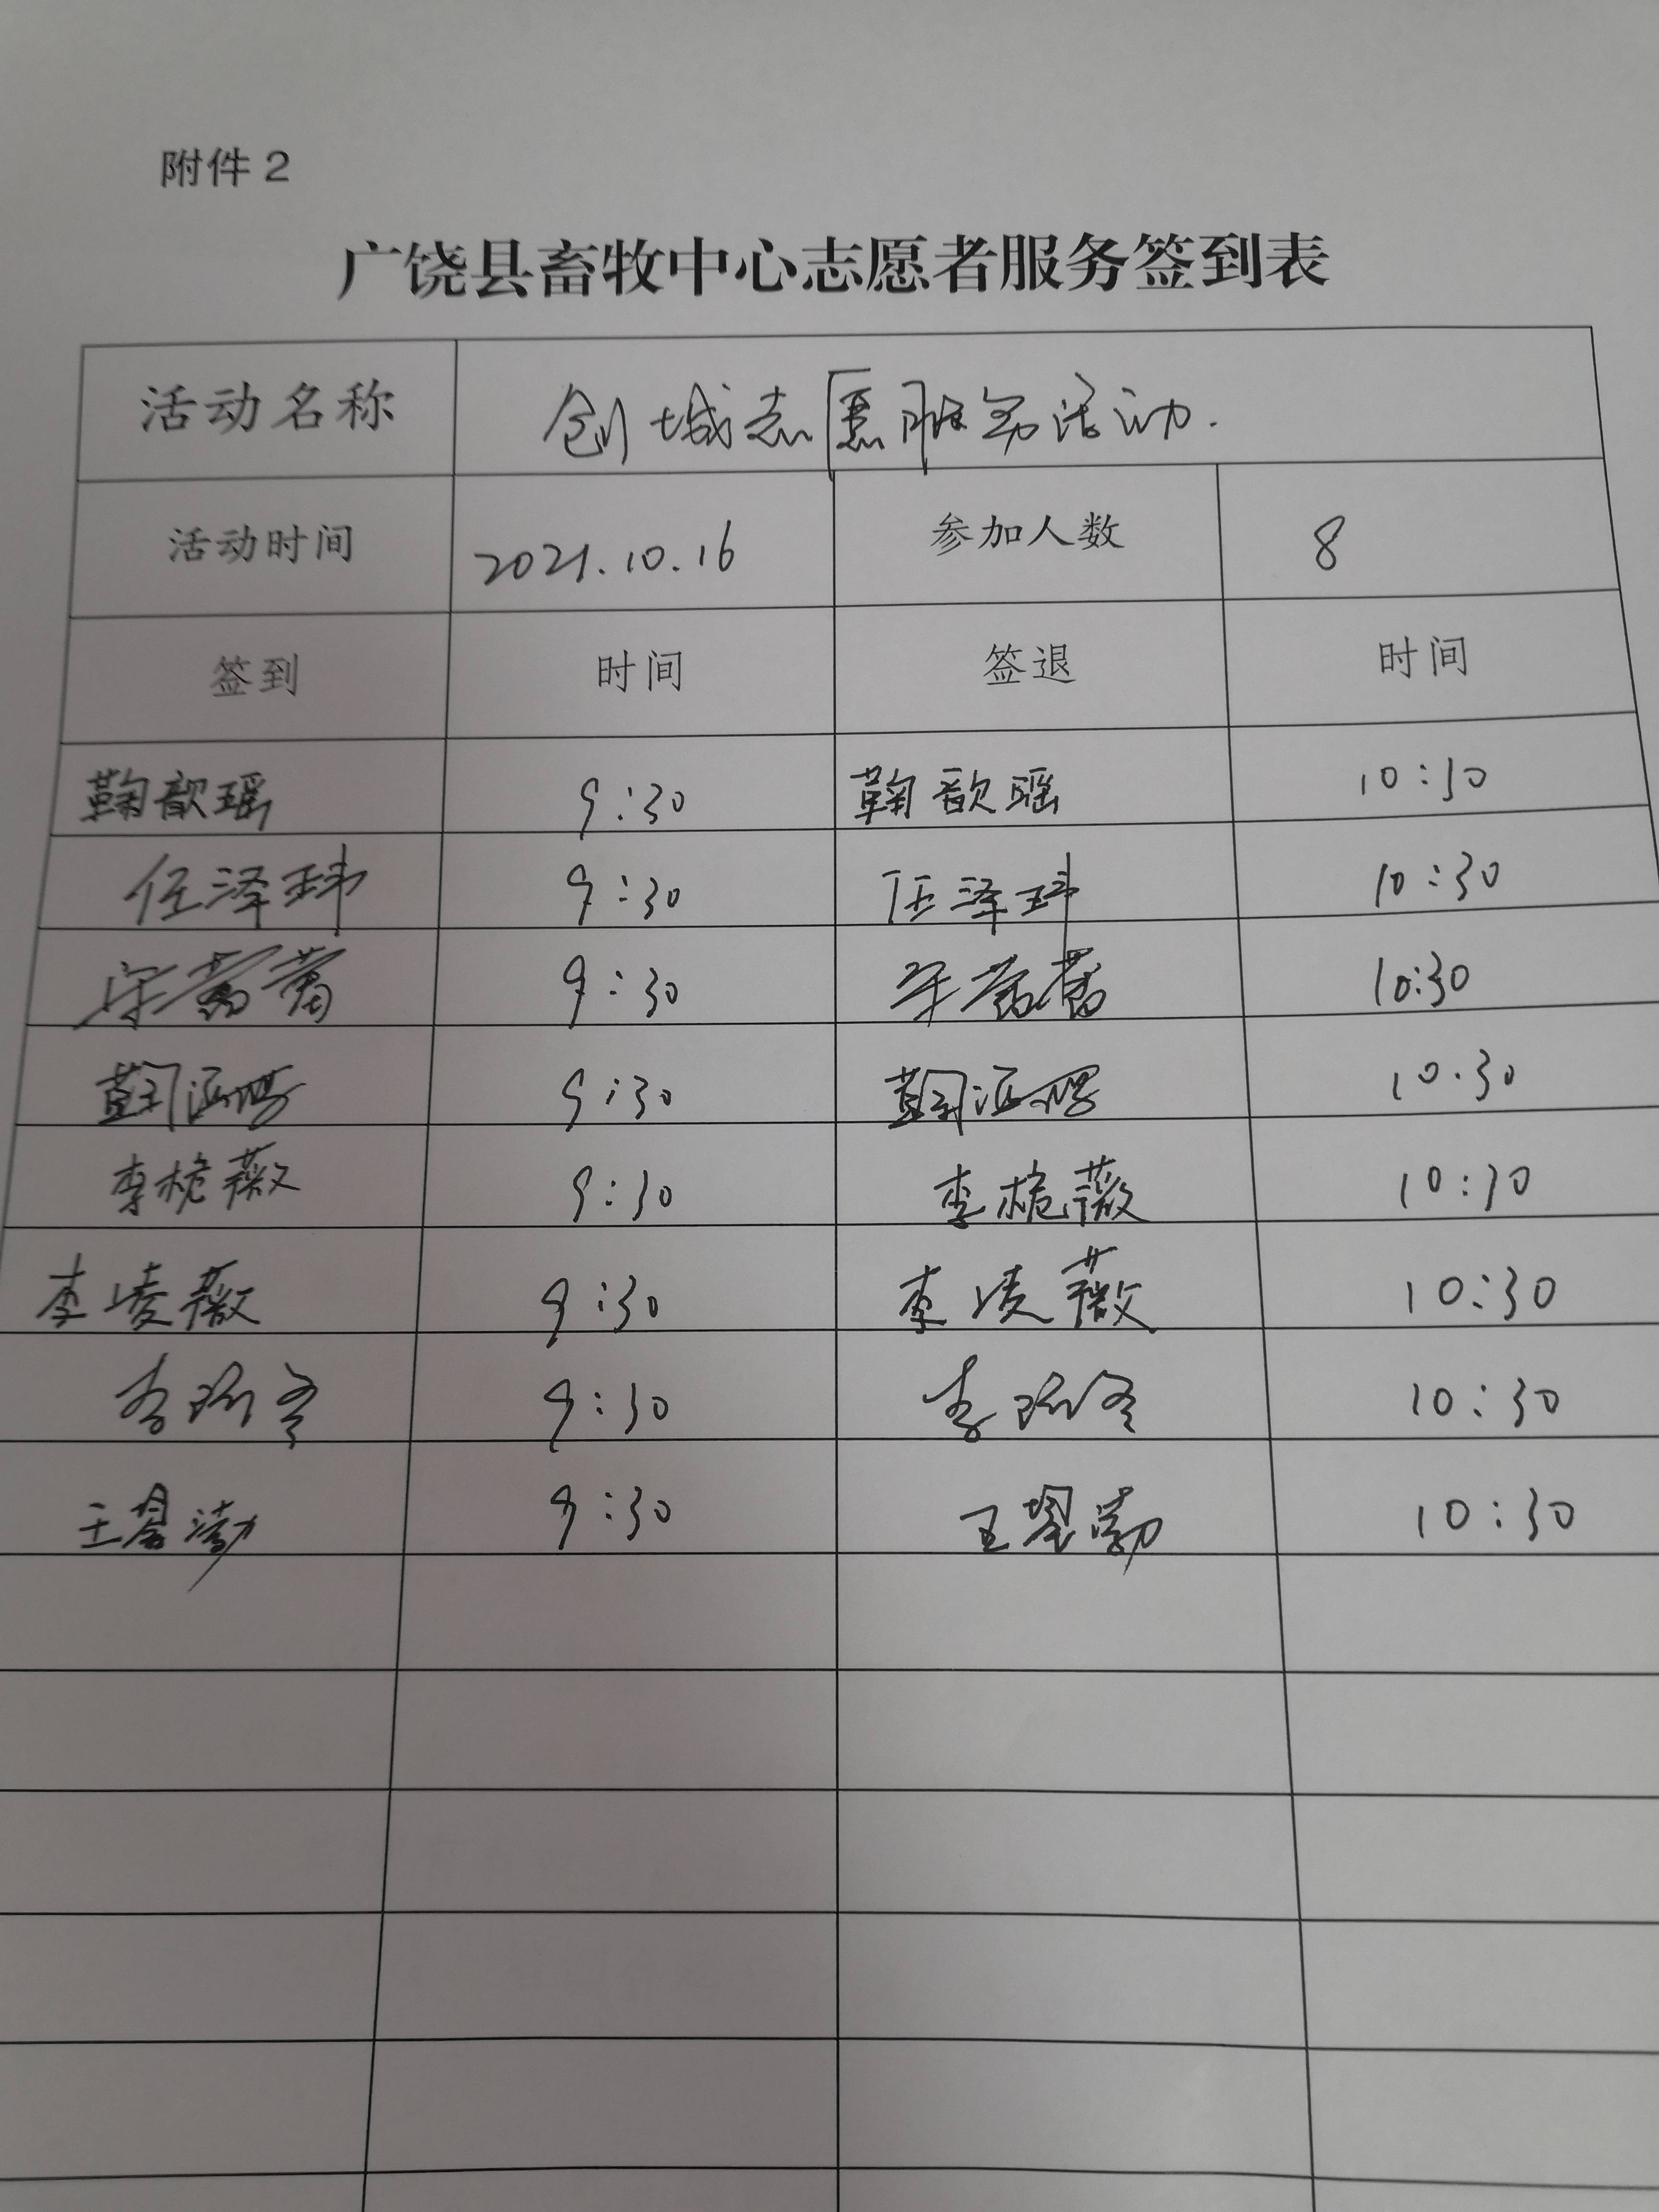 附件2
广饶县畜牧中心志愿者服务签到表
活动名称 创城志愿服务活动.
活动时间 2021.10.16 参加人数 8
签到 时间 签退 时间
鞠歆瑶 9:30 鞠歆瑶 10:30
任泽玮 9:30 任泽玮 10:30
9:30 10:30
9:30 10:30
李桅薇 9:30 李桅薇 10:30
李凌薇 9:30 李凌薇 10:30
李 9:30 李 10:30
王 9:30 王 10:30